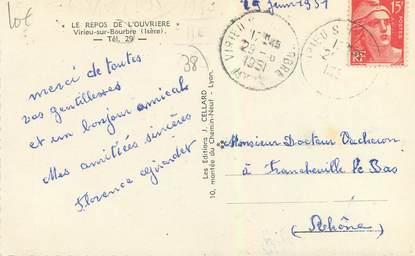 10€
LE REPOS DE L'OUVRIERE
Virieu-sur-Bourbre (Isère)
Tél. 29
38
merci de toutes
vos gentillesses
et un bonjour amical
Mes amitiés sincères
Florence Girardet
Les Editions J. CELLARD
10, montée du Chemin-Neuf - Lyon.
Juin 1951
VIRIEU S
BRE
1951
VIRIEU S
15F
RF
Monsieur Docteur Vacheron
à Francheville le Bas
(Rhône)